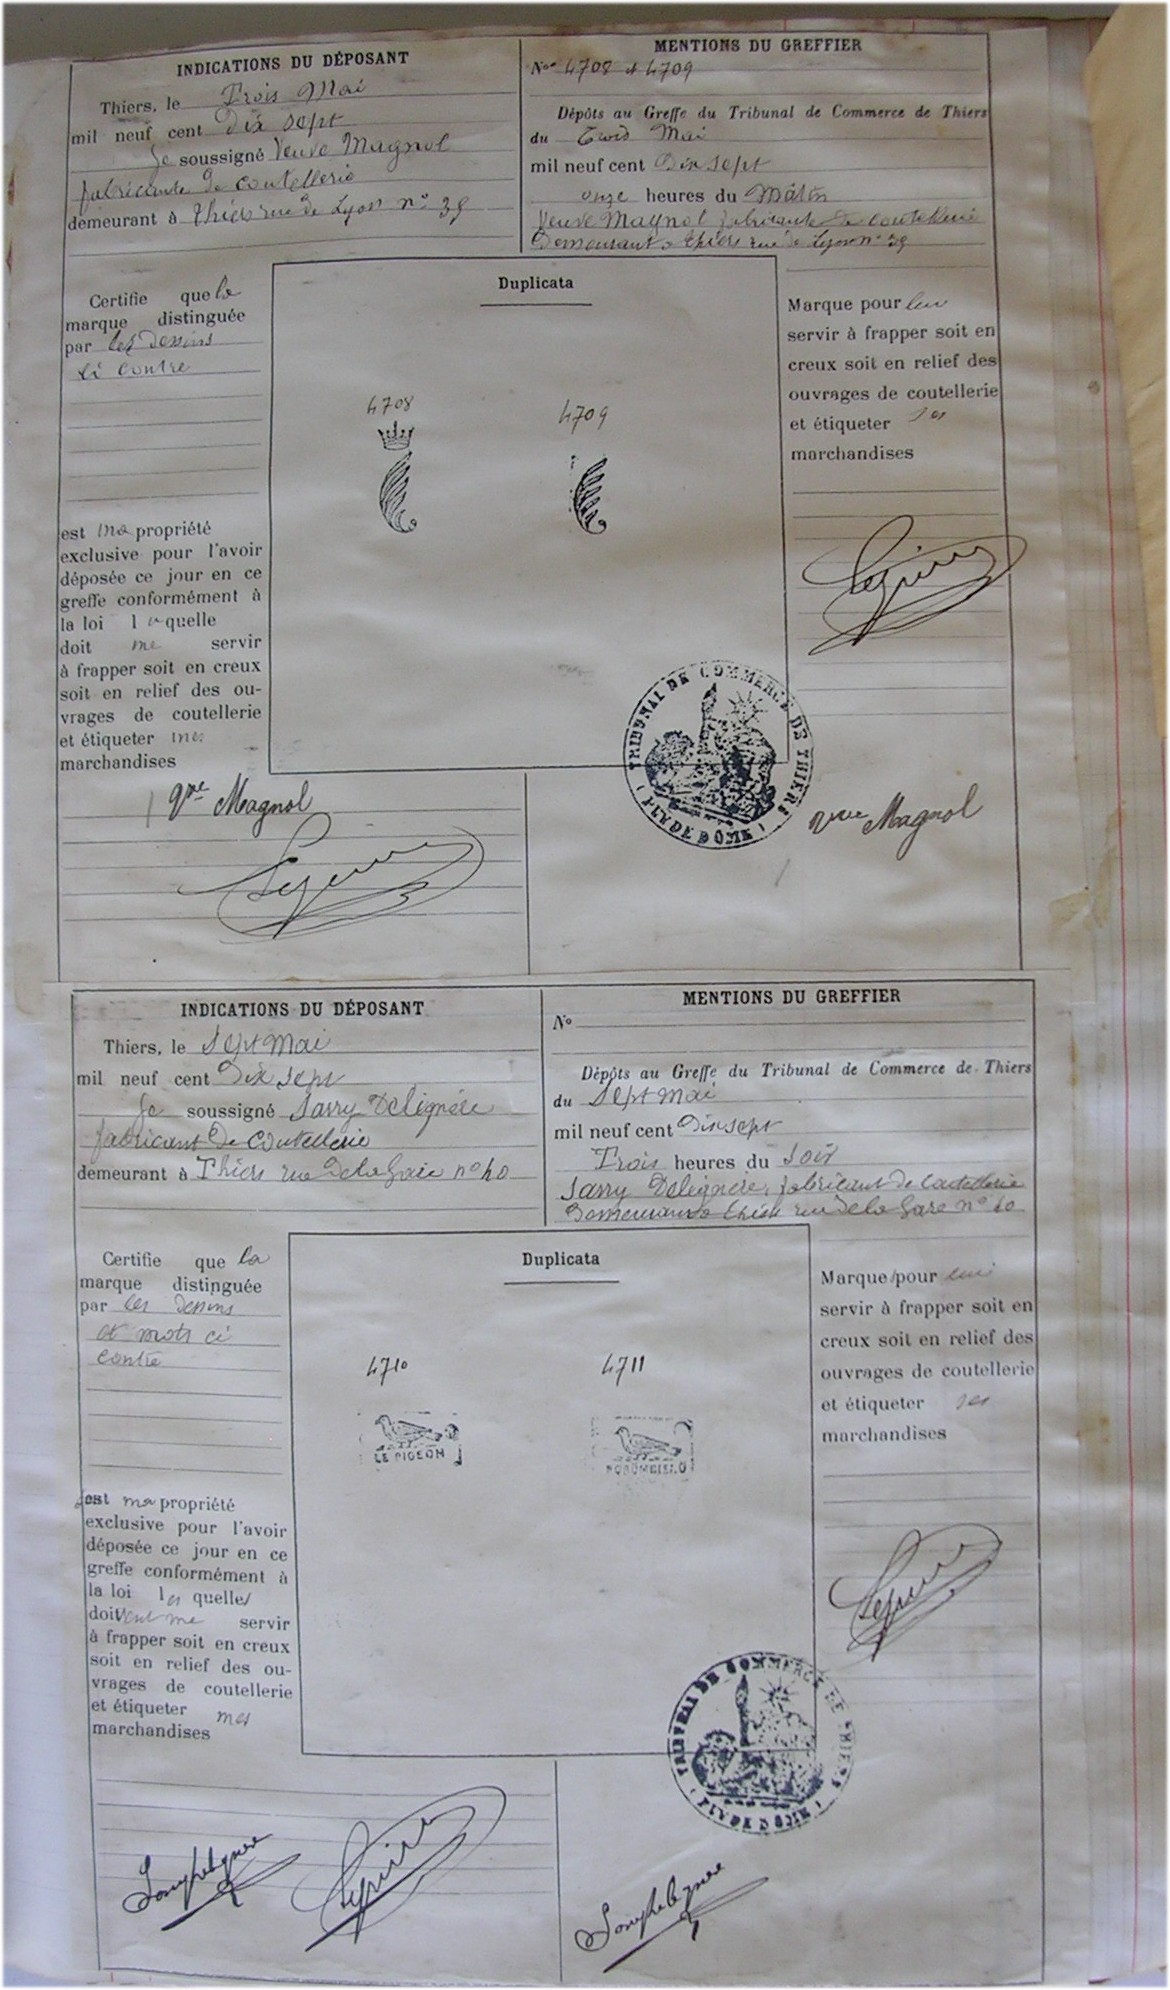 INDICATIONS DU DÉPOSANT
Thiers, le Trois Mai
mil neuf cent Dix sept
Je soussigné Veuve Magnol
fabricante de coutellerie
demeurant à Thiers rue de Lyon n° 39
MENTIONS DU GREFFIER
Nos 4708 et 4709
Dépôts au Greffe du Tribunal de Commerce de Thiers
du Trois Mai
mil neuf cent Dix sept
onze heures du Matin
Veuve Magnol fabricante de coutellerie
Demeurant à Thiers rue de Lyon n° 39
Certifie que la
marque distinguée
par les Dessins
ci contre
est ma propriété
exclusive pour l'avoir
déposée ce jour en ce
greffe conformément à
la loi laquelle
doit me servir
à frapper soit en creux
soit en relief des ou-
vrages de coutellerie
et étiqueter mes
marchandises
Vve Magnol
Duplicata
4708
4709
TRIBUNAL DE COMMERCE DE THIERS
( PUY DE DÔME )
Marque pour lui
servir à frapper soit en
creux soit en relief des
ouvrages de coutellerie
et étiqueter ses
marchandises
veuve Magnol
INDICATIONS DU DÉPOSANT
Thiers, le Sept Mai
mil neuf cent Dix sept
Je soussigné Sarry Delignère
fabricant de coutellerie
demeurant à Thiers rue De la Gare n° 40
MENTIONS DU GREFFIER
No
Dépôts au Greffe du Tribunal de Commerce de Thiers
du Sept Mai
mil neuf cent Dix sept
Trois heures du Soir
Sarry Delignère, fabricant de coutellerie
Demeurant à Thiers rue De la Gare n° 40
Certifie que la
marque distinguée
par les dessins
et mots ci
contre
est ma propriété
exclusive pour l'avoir
déposée ce jour en ce
greffe conformément à
la loi lesquelles
doivent me servir
à frapper soit en creux
soit en relief des ou-
vrages de coutellerie
et étiqueter mes
marchandises
Duplicata
4710
4711
LE PIGEON
TRIBUNAL DE COMMERCE DE THIERS
( PUY DE DÔME )
Marque pour lui
servir à frapper soit en
creux soit en relief des
ouvrages de coutellerie
et étiqueter ses
marchandises